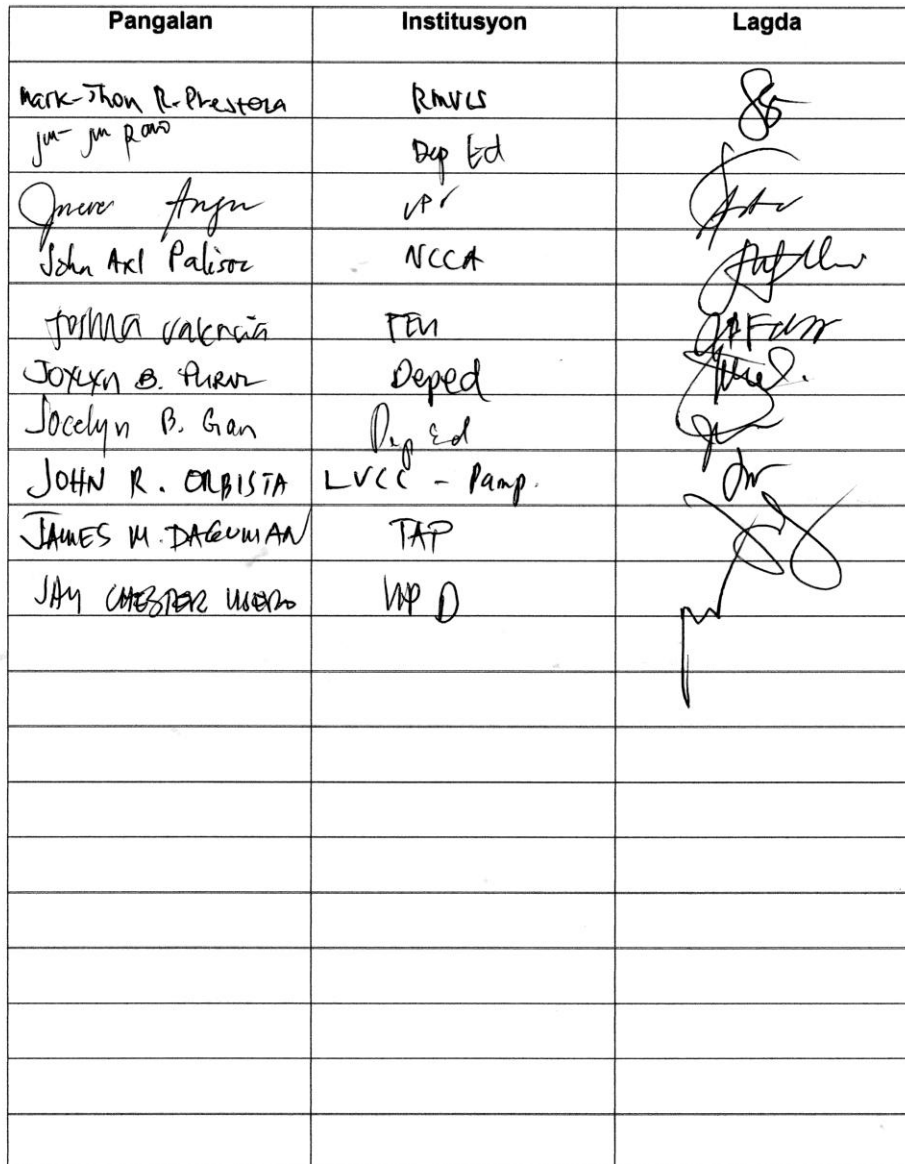 Pangalan Institusyon Lagda
Mark-Jhon R. Prestoza RMVLS
Jun-Jun Ramo Dep Ed
John Axl Palisoc NCCA
Joshua Valencia FEU
B. Deped
Jocelyn B. Gan Dep Ed
JOHN R. ORBISTA LVCC - Pamp.
JAMES M. DAGUMAN TAP
JAY CHESTER UP D